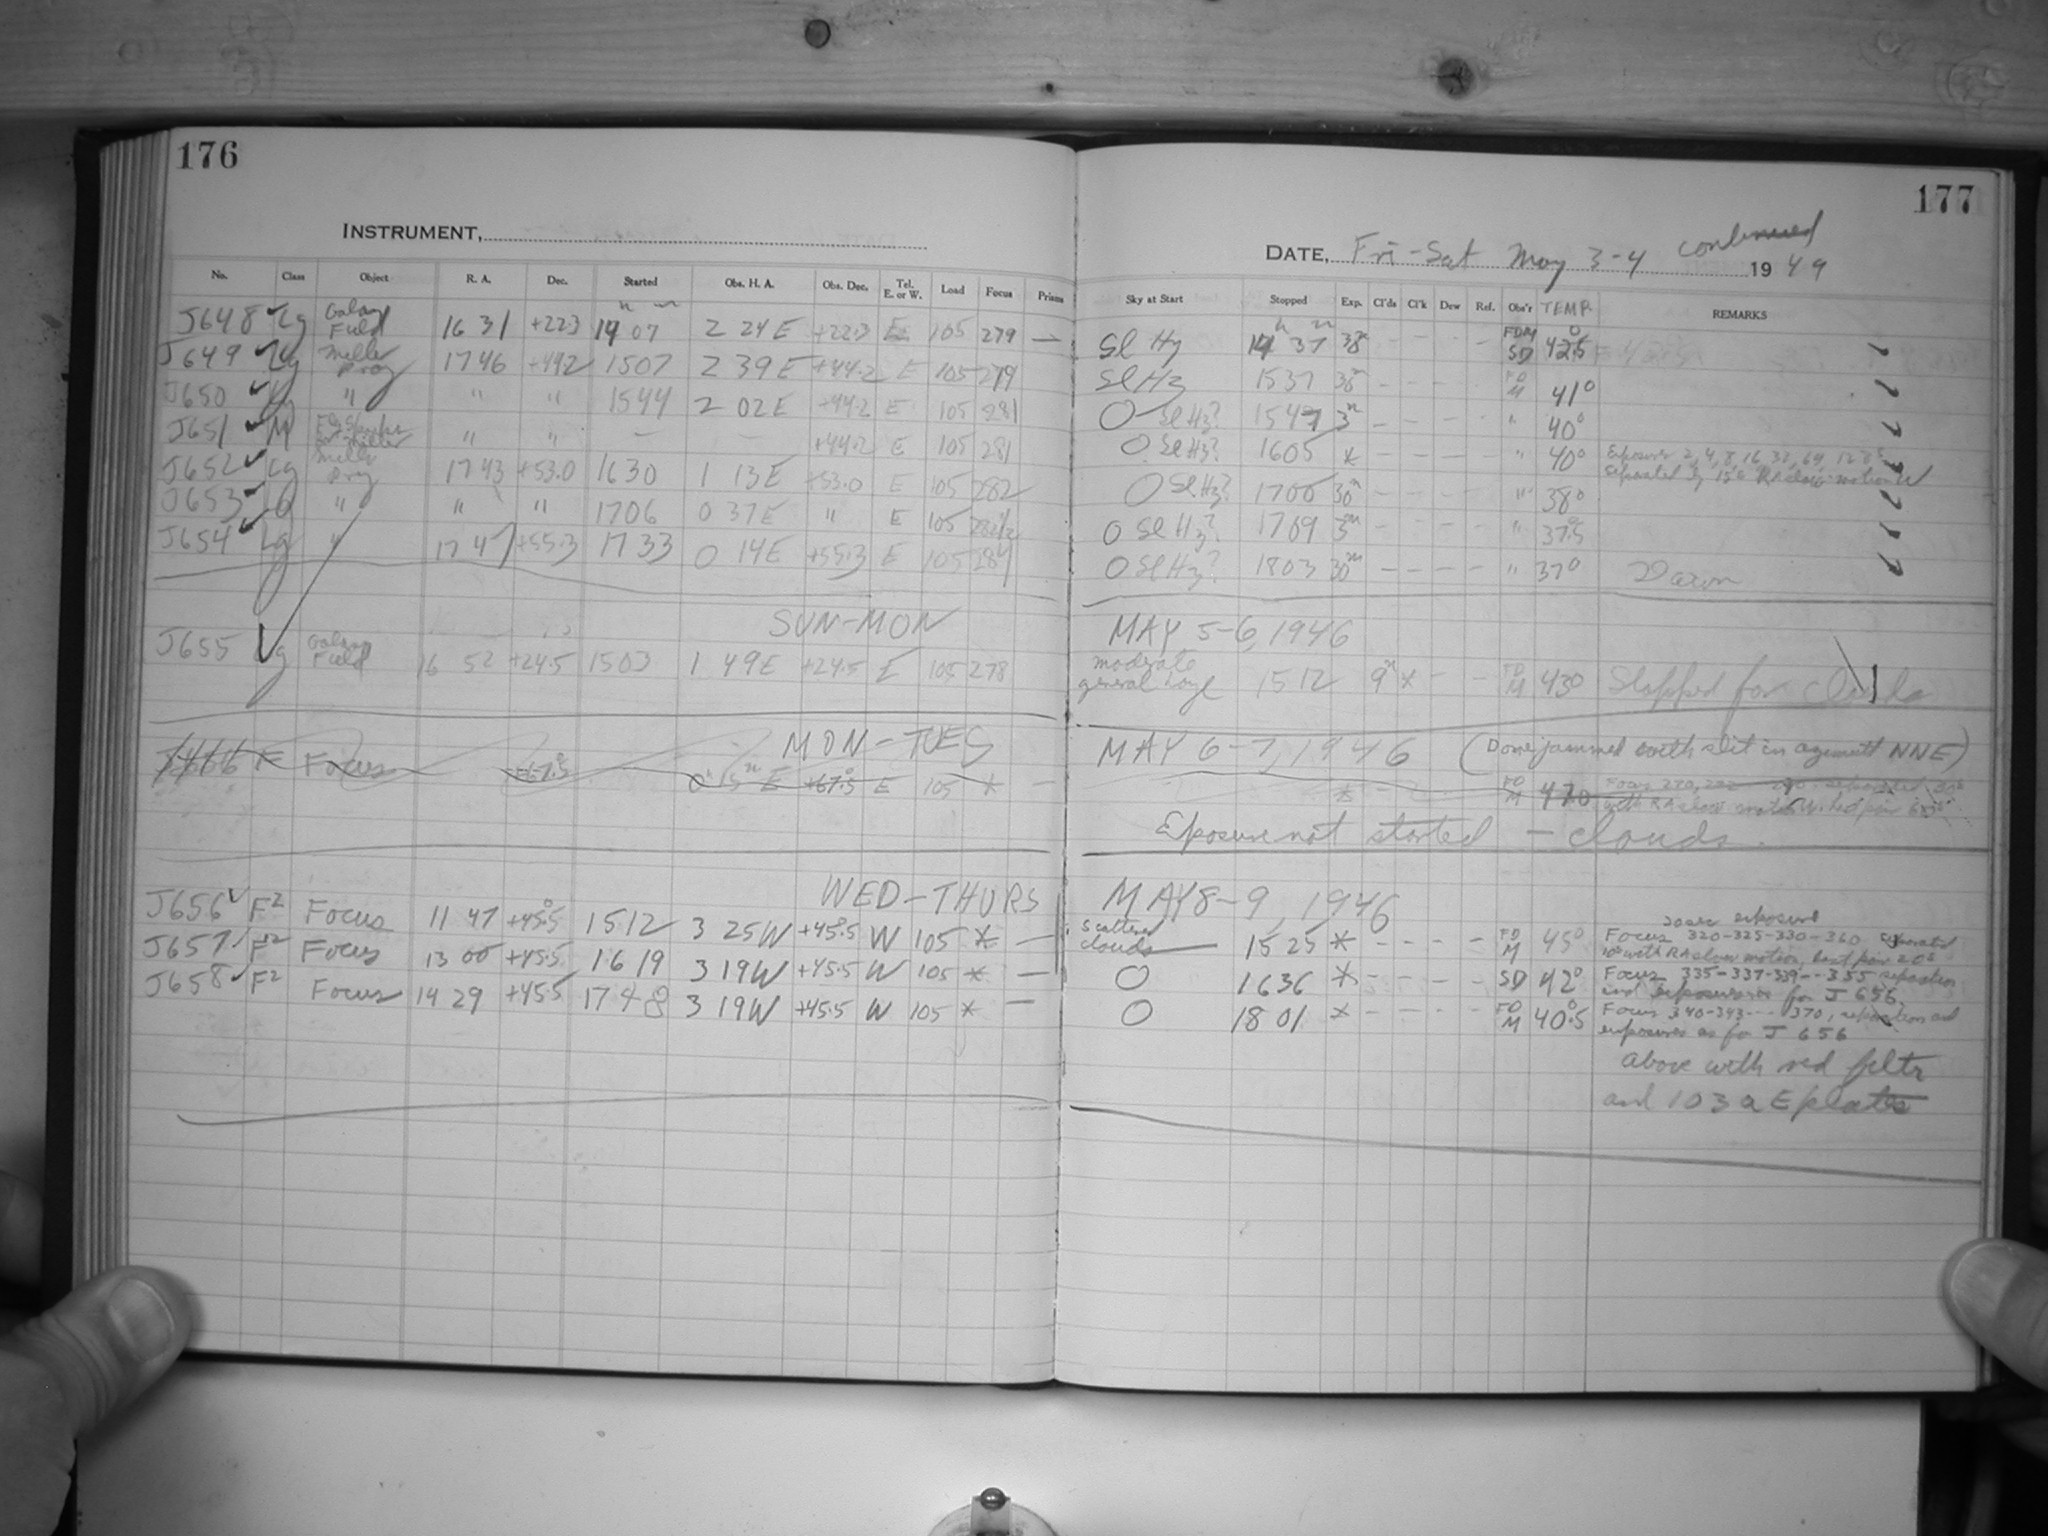 176
177
INSTRUMENT,
DATE, Fri-Sat May 3-4 continued 1949
No. Class Object R. A. Dec. Started Obs. H. A. Obs. Dec. Tel. E. or W. Load Focus Prism
Sky at Start Stopped Exp. Cl'ds Cl'k Dew Ref. Obs'r TEMP. REMARKS
J648 Lg Galaxy Field 16 31 +22.3 1407 2 24 E +22.3 E 105 279 —
Sl Hz 14 37 FDM SD 42.5
J649 Lg Miller Prog 17 46 +44.2 1507 2 39 E +44.2 E 105 279
Sl Hz 1537 FD M 41°
J650 " " " 1544 2 02 E +44.2 E 105 281
O Sl Hz? 1547 3m " 40°
J651 " " — — +44.2 E 105 281
O Sl Hz? 1605 * " 40° Exposures 2, 4, 8, 16, 32, 64, 128s
separated by RA slow motion W
J652 Lg Miller Prog 17 43 +53.0 1630 1 13 E +53.0 E 105 282
O Sl Hz? 1700 30m " 38°
J653 " " " 1706 0 37 E " E 105
O Sl Hz? 1709 3m " 37.5
J654 Lg " 17 47 +55.3 1733 0 14 E +55.3 E 105 284
O Sl Hz? 1803 30m " 37° Dawn
SUN-MON MAY 5-6, 1946
J655 Lg Galaxy Field 16 52 +24.5 1503 1 49 E +24.5 E 105 278
moderate general haze 1512 9m * - - FD M 43° Stopped for clouds
MON-TUES MAY 6-7, 1946 (Dome jammed with slit in azimuth NNE)
F Focus +67.5 0h 15m E +67.5 E 105 * —
* FD M 47°
Exposure not started — clouds.
WED-THURS MAY 8-9, 1946
J656 F2 Focus 11 47 +45.5 1512 3 25 W +45.5 W 105 * —
scattered clouds 15 25 * - - - - FD M 45° 20 sec exposure
Focus 320-325-330-360 separated
10s with RA slow motion, last pair 20s
J657 F2 Focus 13 00 +45.5 1619 3 19 W +45.5 W 105 * —
O 1636 * - - - - SD 42° Focus 335-337-339--355 separation
and exposures for J 656.
J658 F2 Focus 14 29 +45.5 1748 3 19 W +45.5 W 105 * —
O 18 01 * - - - - FD M 40.5 Focus 340-343--- 370, separation and
exposures as for J 656
above with red filtr
and 103a E plates